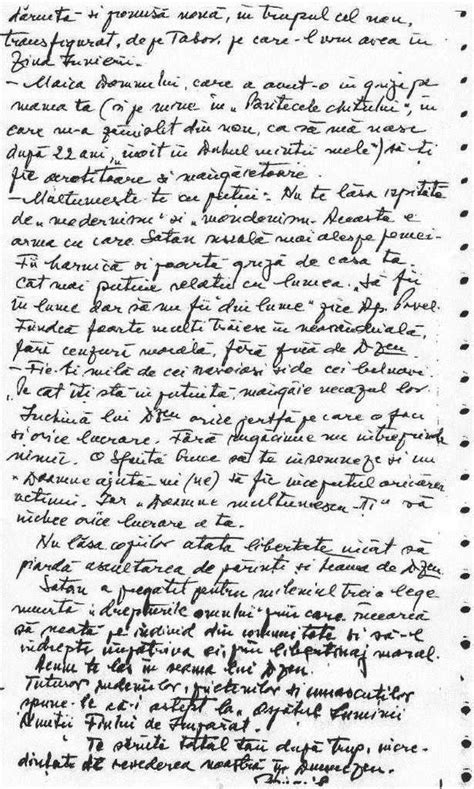 dăruită și promisă nouă, în trupul cel nou,
transfigurat, de pe Tabor, pe care-l vom avea în
Ziua Învierii.
– Maica Domnului, care a avut-o în grijă pe
mama ta (și pe mine în „
care m-a zămislit din nou, ca să mă nasc
după 22 ani, „înoit în Duhul minții mele") să-ți
fie ocrotitoare și mângăietoare.
– Mulțumește-te cu puțin. Nu te lăsa ispitită
de „modernism" și „mondenism. Aceasta e
arma cu care Satan uneală mai ales pe femei.
Fii harnică și poartă grijă de casa ta.
Cât mai puține relații cu lumea. „Să fii
în lume dar să nu fii „din lume" zice Ap. Pavel.
Fiindcă foarte mulți trăiesc în neorânduială,
fără cenzură morală, fără frică de Dzeu.
– Fie-ți milă de cei nevoiași și de cei bolnavi.
Pe cât îți stă în putință, mângâie necazul lor.
Închină lui Dzeu orice jertfă pe care o faci
și orice lucrare. Fără rugăciune nu întreprinde
nimic. O Sfântă Cruce să te însemneze și un
„Doamne ajută-mi (ne) să fie începutul oricărei
acțiuni. Iar „Doamne mulțumescu-Ți" să
închee orice lucrare a ta.
Nu lăsa copiilor atâta libertate încât să
piardă ascultarea de părinți și teama de Dzeu.
Satan a pregătit pentru mileniul trei o lege
numită „drepturile omului" prin care încearcă
să scoată pe individ din comunitate și să-l
îndrepte împotriva ei, prin libertinaj moral.
Acum te las în seama lui Dzeu.
Tuturor rudeniilor, prietenilor și cunoscuților
spune-le că-i aștept la „Ospățul Luminii
Nunții Fiului de Împărat".
Te sărută tatăl tău după trup, încre-
dințată de revederea noastră în Dumnezeu.